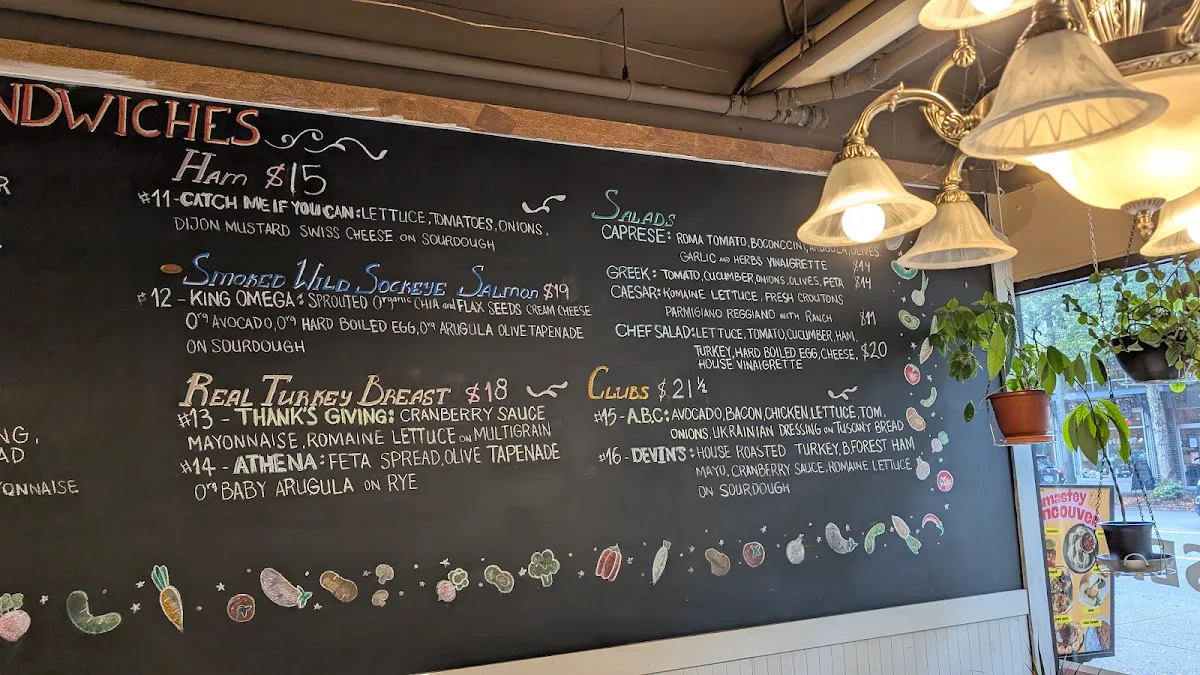 NDWICHES
R
NG,
AD
ONNAISE
HAM $15
#11-CATCH ME IF YOU CAN: LETTUCE, TOMATOES, ONIONS,
DIJON MUSTARD SWISS CHEESE ON SOURDOUGH
SMOKED WILD SOCKEYE SALMON $19
#12-KING OMEGA: SPROUTED Organic CHIA and FLAX SEEDS CREAM CHEESE
Org AVOCADO, Org HARD BOILED EGG, Org ARUGULA OLIVE TAPENADE
ON SOURDOUGH
REAL TURKEY BREAST $18
#13-THANK'S GIVING: CRANBERRY SAUCE
MAYONNAISE, ROMAINE LETTUCE ON MULTIGRAIN
#14-ATHENA: FETA SPREAD, OLIVE TAPENADE
Org BABY ARUGULA ON RYE
SALADS
CAPRESE: ROMA TOMATO, BOCONCCINI, ARUGULA, OLIVES
GARLIC AND HERBS VINAIGRETTE $14
GREEK: TOMATO, CUCUMBER, ONIONS, OLIVES, FETA $14
CAESAR: ROMAINE LETTUCE, FRESH CROUTONS
PARMIGIANO REGGIANO WITH RANCH $11
CHEF SALAD: LETTUCE, TOMATO, CUCUMBER, HAM,
TURKEY, HARD BOILED EGG, CHEESE, $20
HOUSE VINAIGRETTE
CLUBS $21 ½
#15-A.B.C: AVOCADO, BACON, CHICKEN, LETTUCE, TOM,
ONIONS, UKRAINIAN DRESSING ON TUSCANY BREAD
#16-DEVIN'S: HOUSE ROASTED TURKEY, B.FOREST HAM
MAYO, CRANBERRY SAUCE, ROMAINE LETTUCE
ON SOURDOUGH
mastey
ncouver